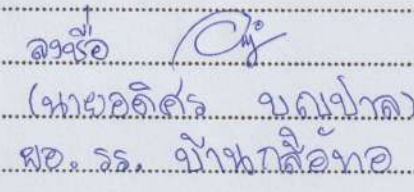 ลงชื่อ
(นายอดิศร บุญปาล)
ผอ. รร. บ้าน